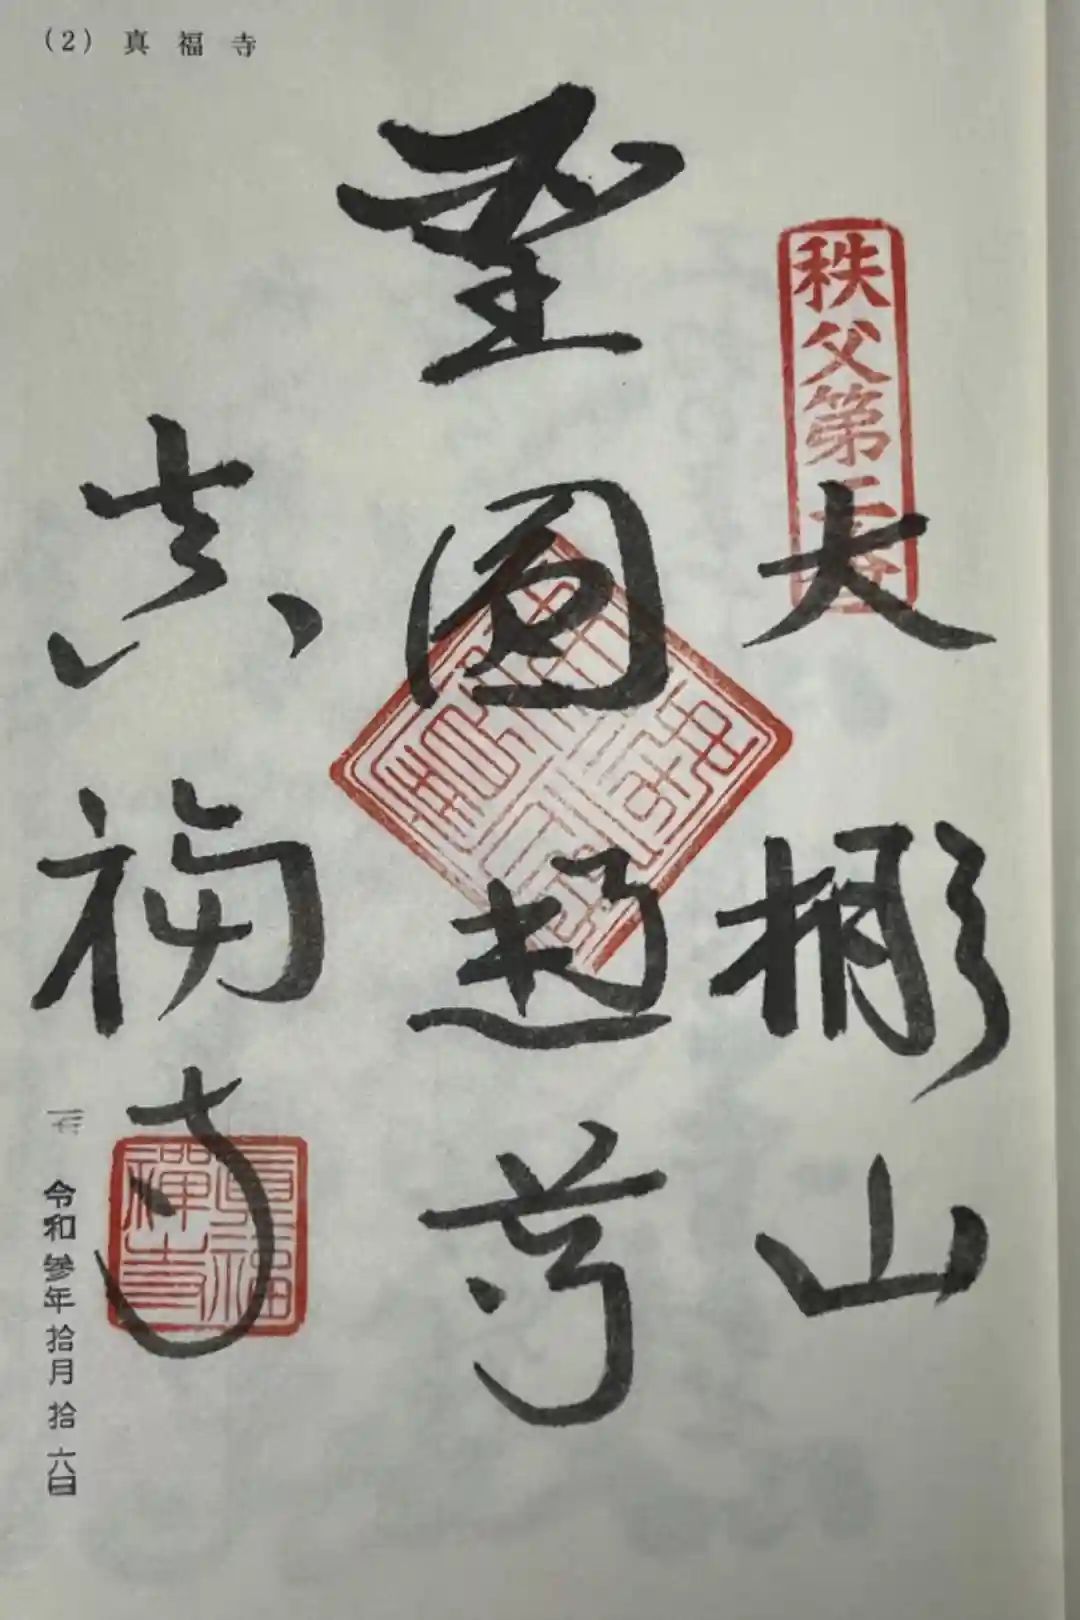 (2) 真福寺
秩父第二番
大棚山
聖圓通尊
真福寺
真福禅寺
令和参年拾月拾六日